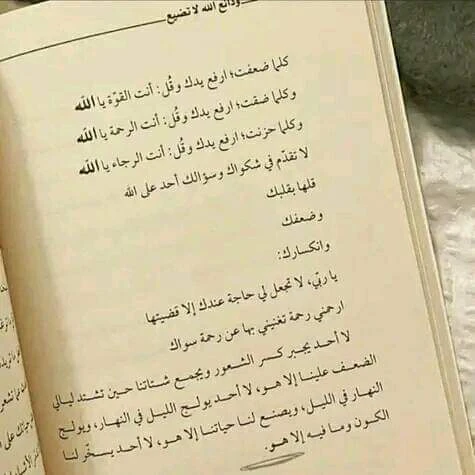 ودائع الله لا تضيع
كلما ضعفت؛ ارفع يدك وقُل: أنت القوّة يا الله
وكلما ضقت؛ ارفع يدك وقُل: أنت الرحمة يا الله
وكلما حزنت؛ ارفع يدك وقُل: أنت الرجاء يا الله
لا تقدّم في شكواك وسؤالك أحد على الله
قلها بقلبك
وضعفك
وانكسارك:
يا ربّي، لا تجعل لي حاجة عندك إلا قضيتها
ارحمني رحمة تغنيني بها عن رحمة سواك
لا أحد يجبر كسر الشعور ويجمع شتاتنا حين تشتد ليالي
الضعف علينا إلا هو، لا أحد يولج الليل في النهار، ويولج
النهار في الليل، ويصنع لنا حياتنا إلا هو، لا أحد يسخّر لنا
الكون وما فيه إلا هو.